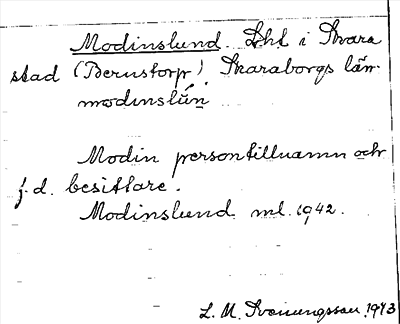 Modinslund. Lht i Skara
stad (Bernstorp). Skaraborgs län.
modinslún
Modin persontillnamn och
f.d. besittare.
Modinslund ml. 1942.
L. M. Svenungsson 1943